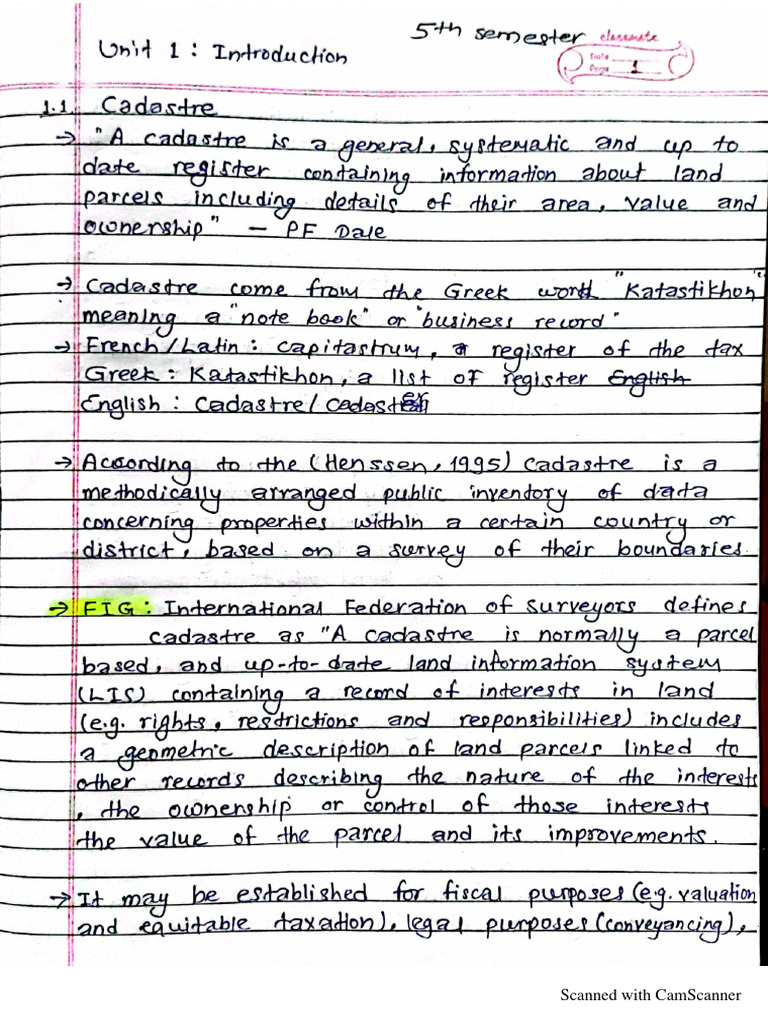 5th semester classmate
Date
Page 1
Unit 1 : Introduction
1.1 Cadastre
→ "A cadastre is a general, systematic and up to
date register containing information about land
parcels including details of their area, value and
ownership" – PF Dale
→ Cadastre come from the Greek word "Katastikhon"
meaning a "note book" or "business record"
→ French/Latin : Capitastrum, a register of the tax
Greek : Katastikhon, a list of register English
English : Cadastre/
→ According to the (Henssen, 1995) Cadastre is a
methodically arranged public inventory of data
concerning properties within a certain country or
district, based on a survey of their boundaries.
→ FIG : International Federation of Surveyors defines
cadastre as "A cadastre is normally a parcel
based, and up-to-date land information system
(LIS) containing a record of interests in land
(e.g. rights, restrictions and responsibilities) includes
a geometric description of land parcels linked to
other records describing the nature of the interests
, the ownership or control of those interests
the value of the parcel and its improvements.
→ It may be established for fiscal purposes (e.g. valuation
and equitable taxation), legal purposes (conveyancing),
Scanned with CamScanner